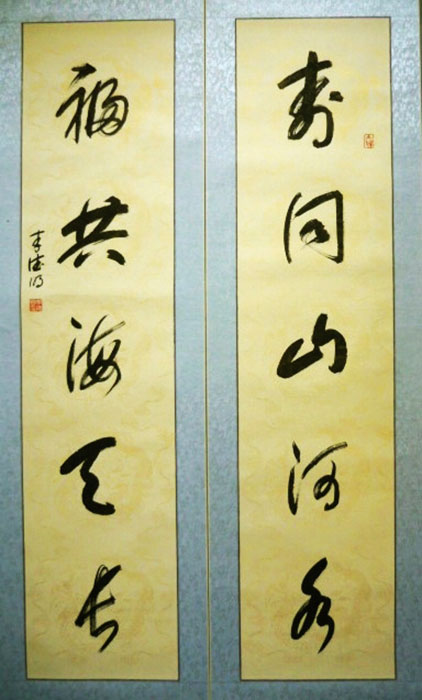 寿同山河永
福共海天长
李德明